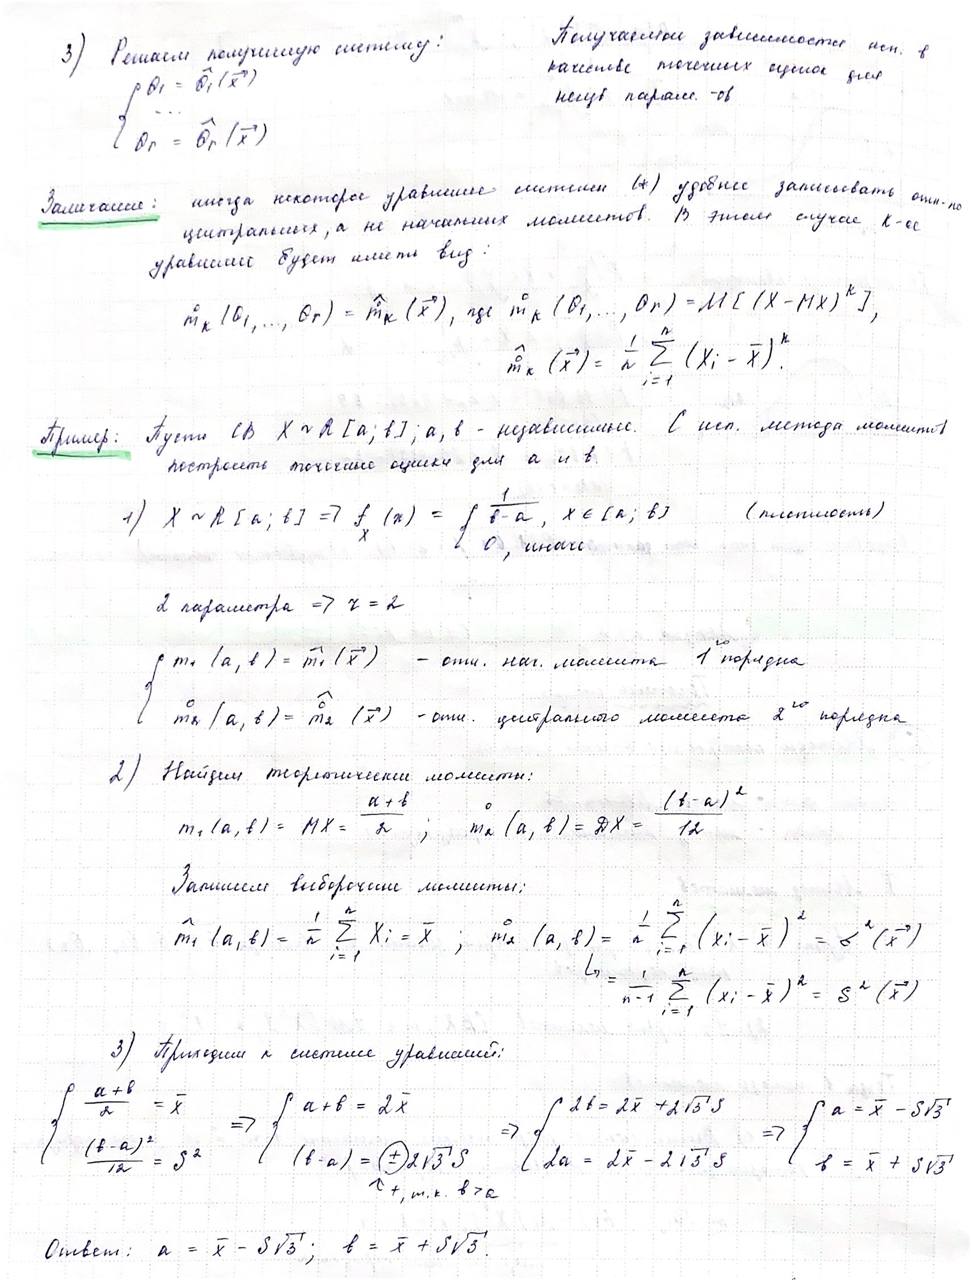 3) Решаем полученную систему:
{ θ₁ = θ̂₁(x⃗)
...
θr = θ̂r(x⃗)
Получаемые зависимости исп. в
качестве точечных оценок для
неизв парам.-ов
Замечание: иногда некоторое уравнение системы (*) удобнее записывать отн-но
центральных, а не начальных моментов. В этом случае k-ое
уравнение будет иметь вид:
m̊ₖ(θ₁, ..., θr) = m̊̂ₖ(x⃗), где m̊ₖ(θ₁, ..., θr) = M[(X - MX)ᵏ],
m̊̂ₖ(x⃗) = 1/n Σᵢ₌₁ⁿ (Xᵢ - X̄)ᵏ.
Пример: Пусть СВ X ~ R[a; b]; a, b - независимые. С исп. метода моментов
построить точечные оценки для a и b
1) X ~ R[a; b] => f_X(x) = { 1/(b-a), x ∈ [a; b] (плотность)
0, иначе
2 параметра => r = 2
{ m₁(a, b) = m̂₁(x⃗) - отн. нач. момента 1го порядка
m̊₂(a, b) = m̊̂₂(x⃗) - отн. центрального момента 2го порядка
2) Найдем теоретические моменты:
m₁(a, b) = MX = (a+b)/2 ; m̊₂(a, b) = DX = (b-a)²/12
Запишем выборочные моменты:
m̂₁(a, b) = 1/n Σᵢ₌₁ⁿ Xᵢ = x̄ ; m̊₂(a, b) = 1/n Σᵢ₌₁ⁿ (xᵢ - x̄)² = σ²(x⃗)
↳ = 1/(n-1) Σᵢ₌₁ⁿ (xᵢ - x̄)² = S²(x⃗)
3) Приходим к системе уравнений:
{ (a+b)/2 = x̄ => { a+b = 2x̄ => { 2b = 2x̄ + 2√3 S => { a = x̄ - S√3
(b-a)²/12 = S² (b-a) = ± 2√3 S 2a = 2x̄ - 2√3 S b = x̄ + S√3
+, т.к. b > a
Ответ: a = x̄ - S√3; b = x̄ + S√3.